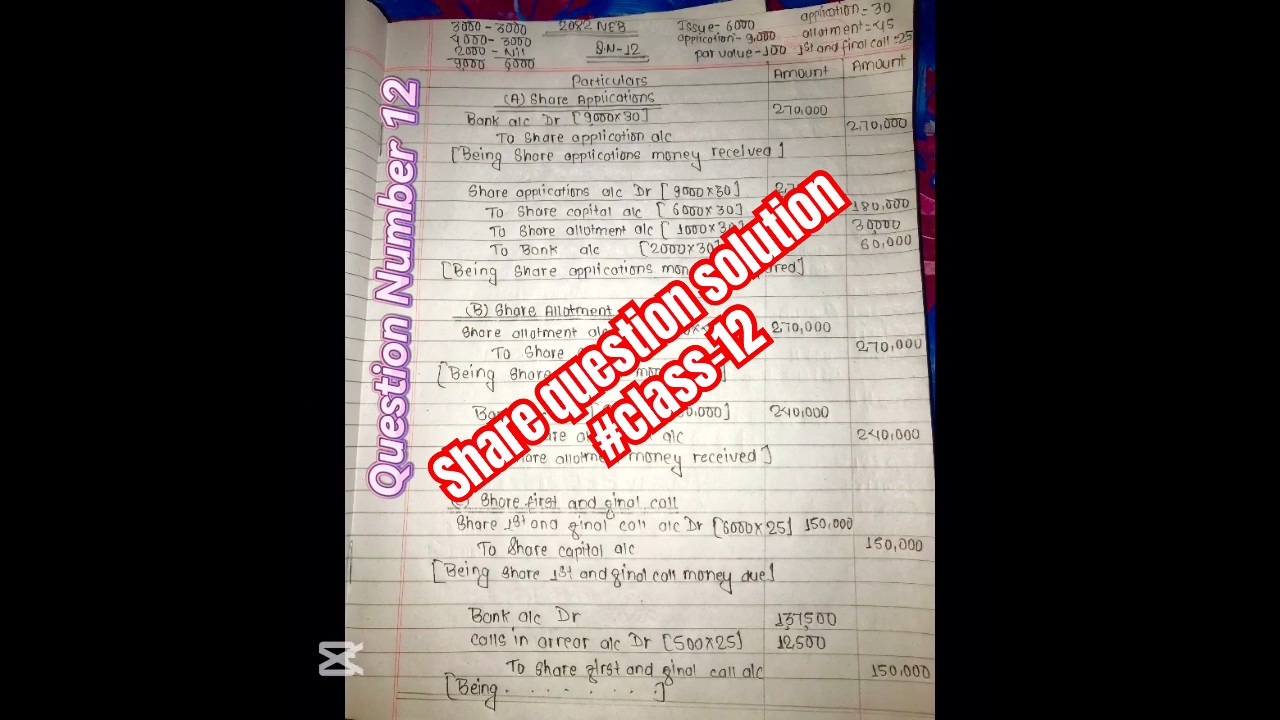 3000 - 3000
4000 - 3000
2000 - Nil
9,000 6000
2082 NEB
Q.N-12
Issue- 6000
application- 9,000
par value-100
application = 30
allotment = 45
1st and final call = 25
Particulars Amount Amount
(A) Share Applications
Bank a/c Dr [9000×30] 270,000
To Share application a/c 270,000
[Being Share applications money received]
Share applications a/c Dr [9000×30]
To Share capital a/c [6000×30] 180,000
To Share allotment a/c [1000×30 30,000
To Bank a/c [2000×30 60,000
[Being Share applications
(B) Share Allotment
Share allotment a/c 270,000
To Share 270,000
[Being Share
240,000
a/c 240,000
money received]
Share first and final call
Share 1st and final call a/c Dr [6000×25] 150,000
To Share capital a/c 150,000
[Being Share 1st and final call money due]
Bank a/c Dr 137,500
calls in arrear a/c Dr [500×25] 12,500
To Share first and final call a/c 150,000
[Being . . . . . . . .]
Question Number 12
Share question solution
#class-12